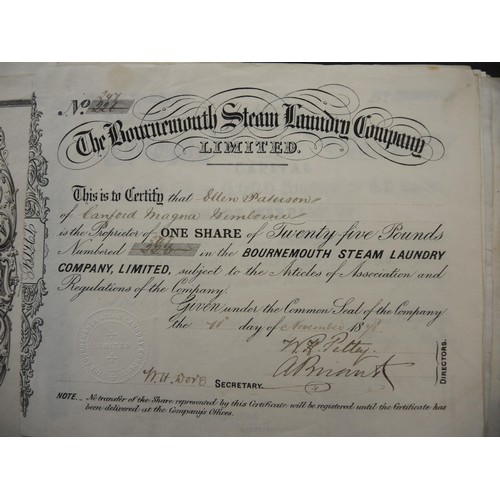 No. 247
The Bournemouth Steam Laundry Company
LIMITED.
This is to Certify that Ellen Paterson
of Canford Magna Wimborne
is the Proprietor of ONE SHARE of Twenty-five Pounds
Numbered in the BOURNEMOUTH STEAM LAUNDRY
COMPANY, LIMITED, subject to the Articles of Association and
Regulations of the Company.
Given under the Common Seal of the Company
the day of November 18
DIRECTORS.
SECRETARY.
NOTE.- No transfer of the Share represented by this Certificate will be registered until the Certificate has
been delivered at the Company's Offices.